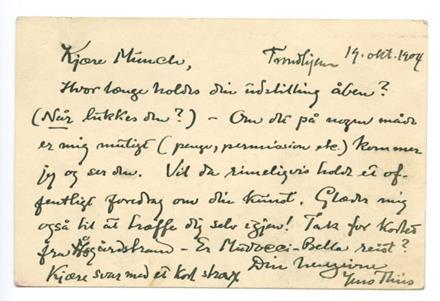 Kjære Munch, Trondhjem 19. okt. 1904
Hvor længe holdes din udstilling åben?
(Når lukkes den?) – Om det på nogen måde
er mig muligt (penge, permission etc) kommer
jeg og ser den. Vil da rimeligvis holde et of-
fentligt foredrag om din kunst. Glæder mig
også til at træffe dig selv igjen! Tak for kortet
fra Åsgårdstrand – Er Mudocci-Bella reist?
Din hengivne
Kjære svar med et kort strax Jens Thiis